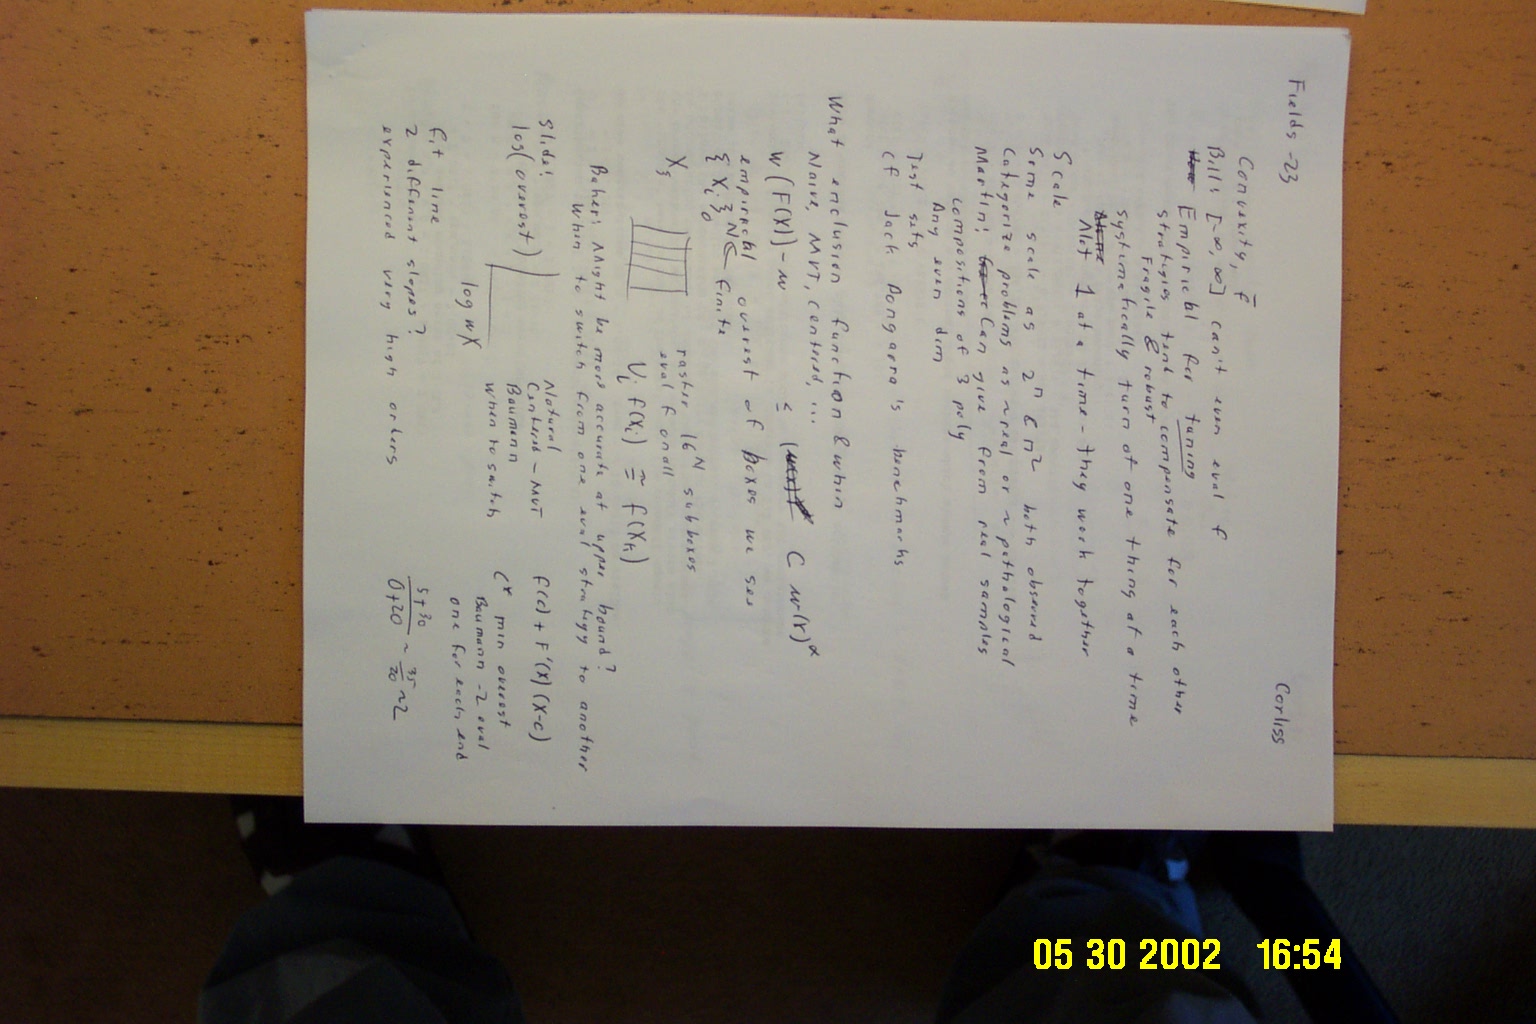 Fields -23 Corliss
Convexity, f̅
Bill: [-∞, ∞] can't even eval f
Empirical for tuning
strategies tend to compensate for each other
Fragile & robust
systematically turn of one thing at a time
Not 1 at a time - they work together
Scale
Some scale as 2ⁿ & n² both observed
Categorize problems as ~real or ~pathological
Martin: Can give from real samples
compositions of 3 poly
Any even dim
Test sets
cf Jack Dongarra's benchmarks
What inclusion function & when
Naive, MVT, centered, ...
w(F(X)) - w ≤ C w(X)^α
empirical overest of boxes we see
{X_i}_0^N ⊂ finite
X_s raster 16^N subboxes
eval f on all
U_i f(X_i) ≅ f(X_s)
Baker: Might be more accurate at upper bound?
When to switch from one eval strategy to another
Slide:
log(overest)
log wX
Natural
Centered - MVT f(c) + F'(X)(X-c)
Baumann
when to switch
C* min overest
Baumann - 2 eval
one for each end
fit line
2 different slopes?
experienced very high orders
5+30 / 0+20 ~ 35/20 ~2
05 30 2002 16:54